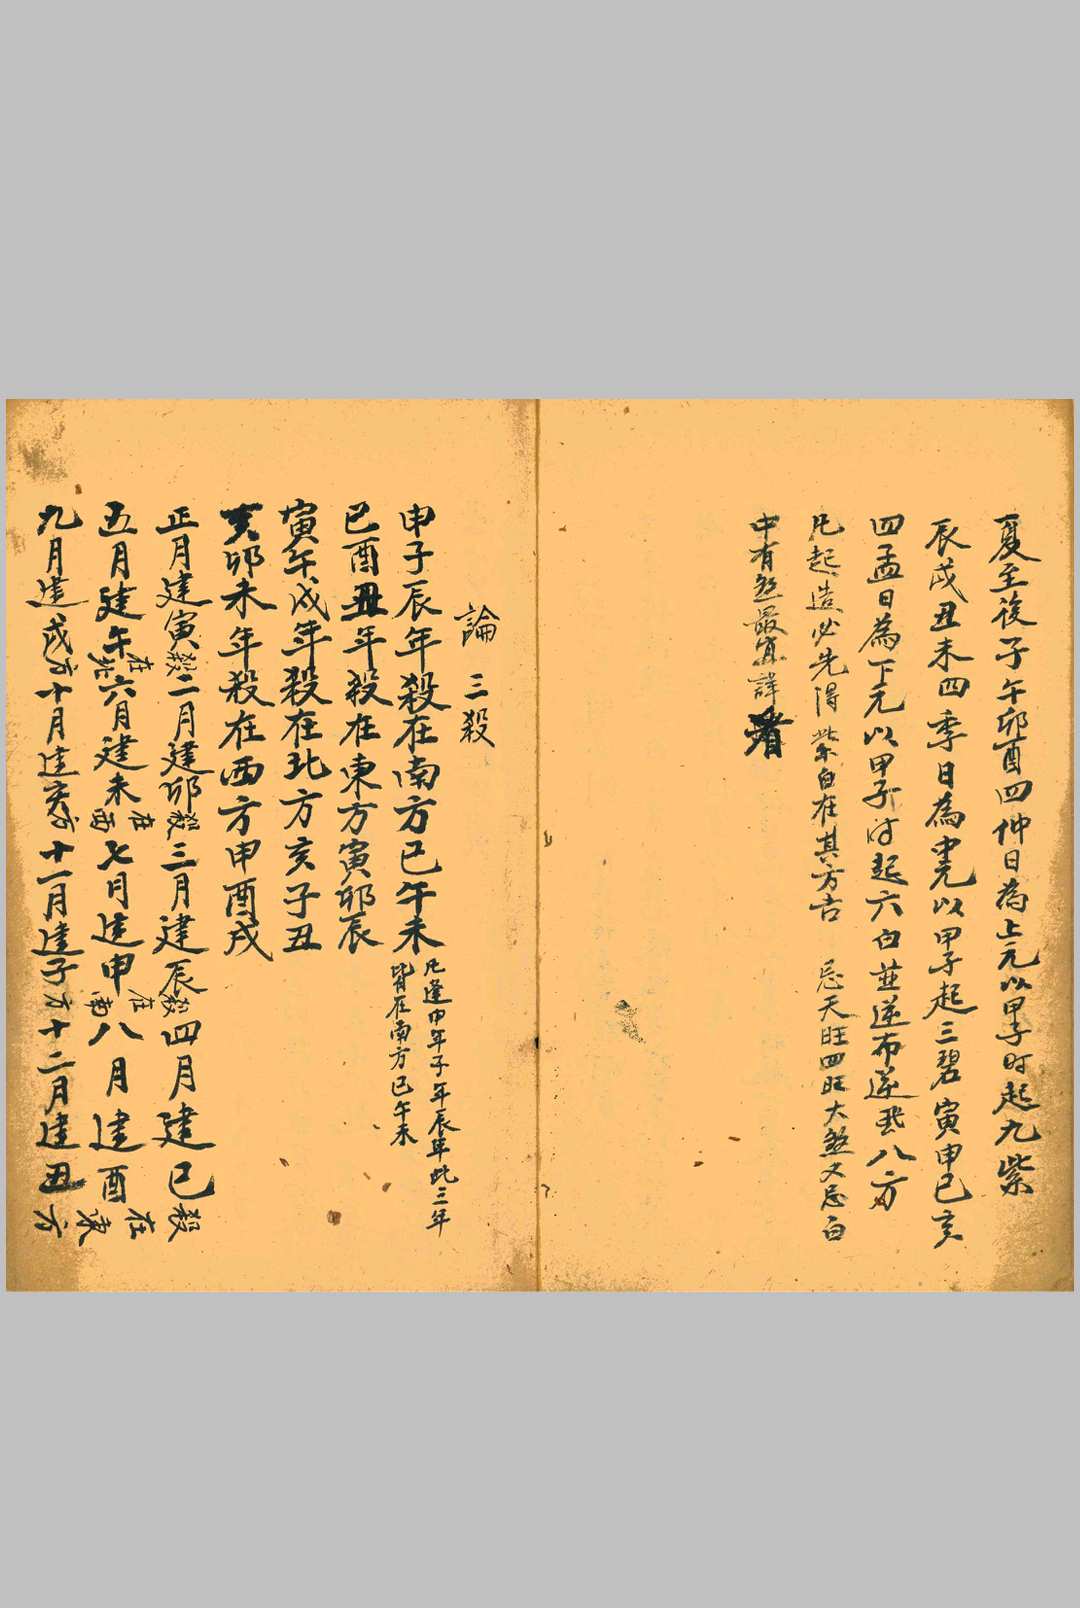 夏至後子午卯酉四仲日為上元以甲子时起九紫
辰戌丑未四季日為中元以甲子起三碧寅申巳亥
四孟日為下元以甲子时起六白並逆布逆飛八方
凡起造必先得紫白在其方吉 忌天旺四旺大煞又忌白
中有煞最宜詳看
論三殺
申子辰年殺在南方巳午未 凡逢申年子年辰年此三年
皆在南方巳午未
巳酉丑年殺在東方寅卯辰
寅午戌年殺在北方亥子丑
亥卯未年殺在西方申酉戌
正月建寅殺二月建卯殺三月建辰殺四月建巳殺
五月建午在北六月建未在西七月建申在南八月建酉在東
九月建戌方十月建亥方十一月建子方十二月建丑方